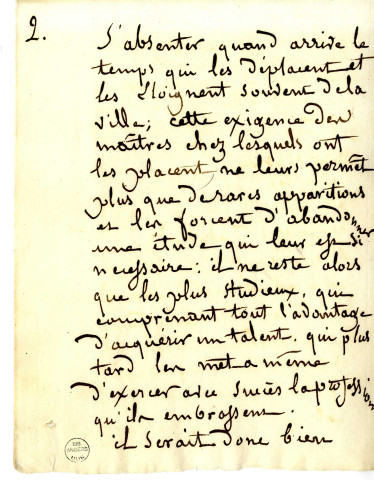 2.
S'absenter quand arrive le
temps qui les déplacent et
les Eloignent souvent de la
ville; cette exigence des
maîtres chez lesquels ont
les placent, ne leurs permet
plus que de rares apparitions
et les forcent d'abandonner
une étude qui leur est si
necessaire: il ne reste alors
que les plus studieux, qui
comprenant tout l'advantage
d'acquérir un talent, qui plus
tard les met a même
d'exercer avec succès la profession
qu'ils embrassent.
il serait donc bien